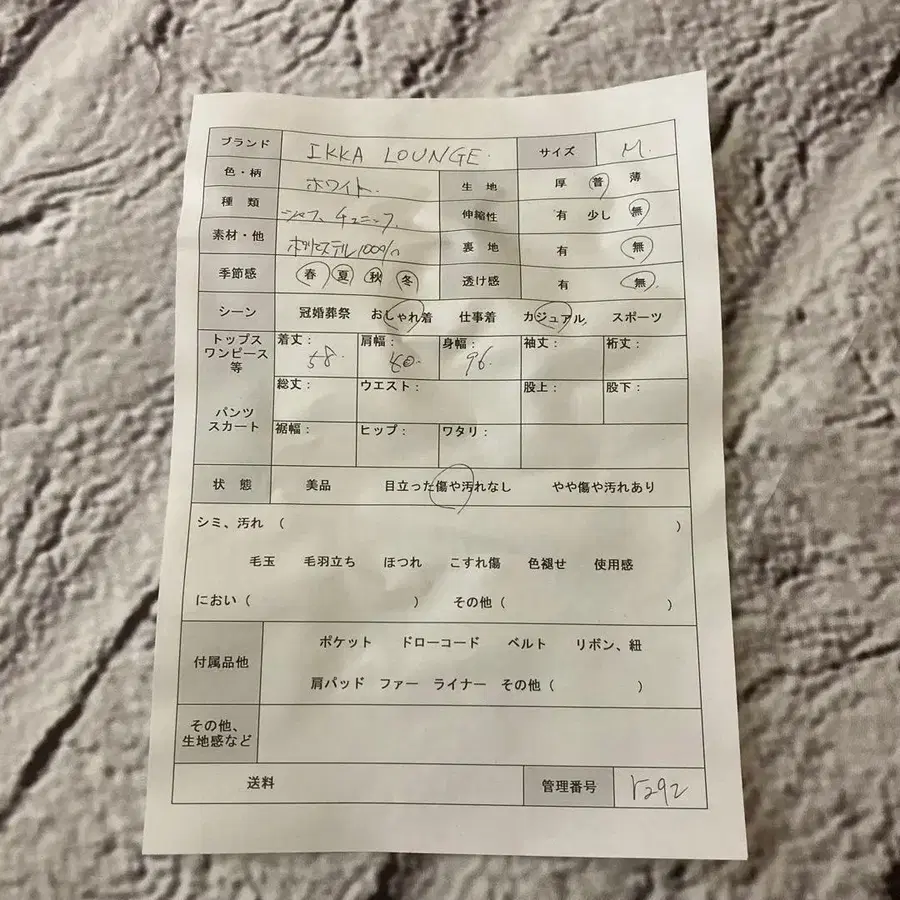 ブランド IKKA LOUNGE. サイズ M.
色・柄 ホワイト. 生地 厚 普 薄
種類 チュニック. 伸縮性 有 少し 無
素材・他 ポリエステル100% 裏地 有 無
季節感 春 夏 秋 冬 透け感 有 無
シーン 冠婚葬祭 おしゃれ着 仕事着 カジュアル スポーツ
トップス ワンピース 等 着丈: 58. 肩幅: 身幅: 96. 袖丈: 裄丈:
パンツ スカート 総丈: ウエスト: 股上: 股下:
裾幅: ヒップ: ワタリ:
状態 美品 目立った傷や汚れなし やや傷や汚れあり
シミ、汚れ ( )
毛玉 毛羽立ち ほつれ こすれ傷 色褪せ 使用感
におい ( ) その他 ( )
付属品他 ポケット ドローコード ベルト リボン、紐
肩パッド ファー ライナー その他 ( )
その他、
生地感など
送料 管理番号